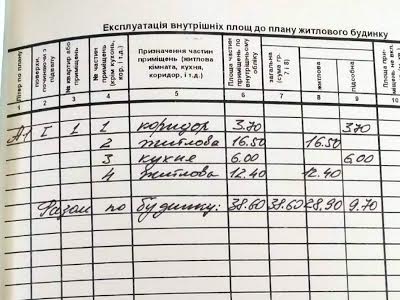 Експлуатація внутрішніх площ до плану житлового будинку
Літер по плану
поверхи, починаючи з підвалу
№ квартир або приміщень
№ частин приміщень (крім кухонь, кор. і т.д.)
Призначення частин приміщень (житлова кімната, кухня, коридор, і т.д.)
Площа частин приміщень по внутрішньому обліку
загальна (сума гр. 7 і 8)
житлова
підсобна
1 2 3 4 5 6 7 8 9 10
А1 I 1 1 коридор 3.70 3.70
2 житлова 16.50 16.50
3 кухня 6.00 6.00
4 житлова 12.40 12.40
Разом по будинку: 38.60 38.60 28.90 9.70